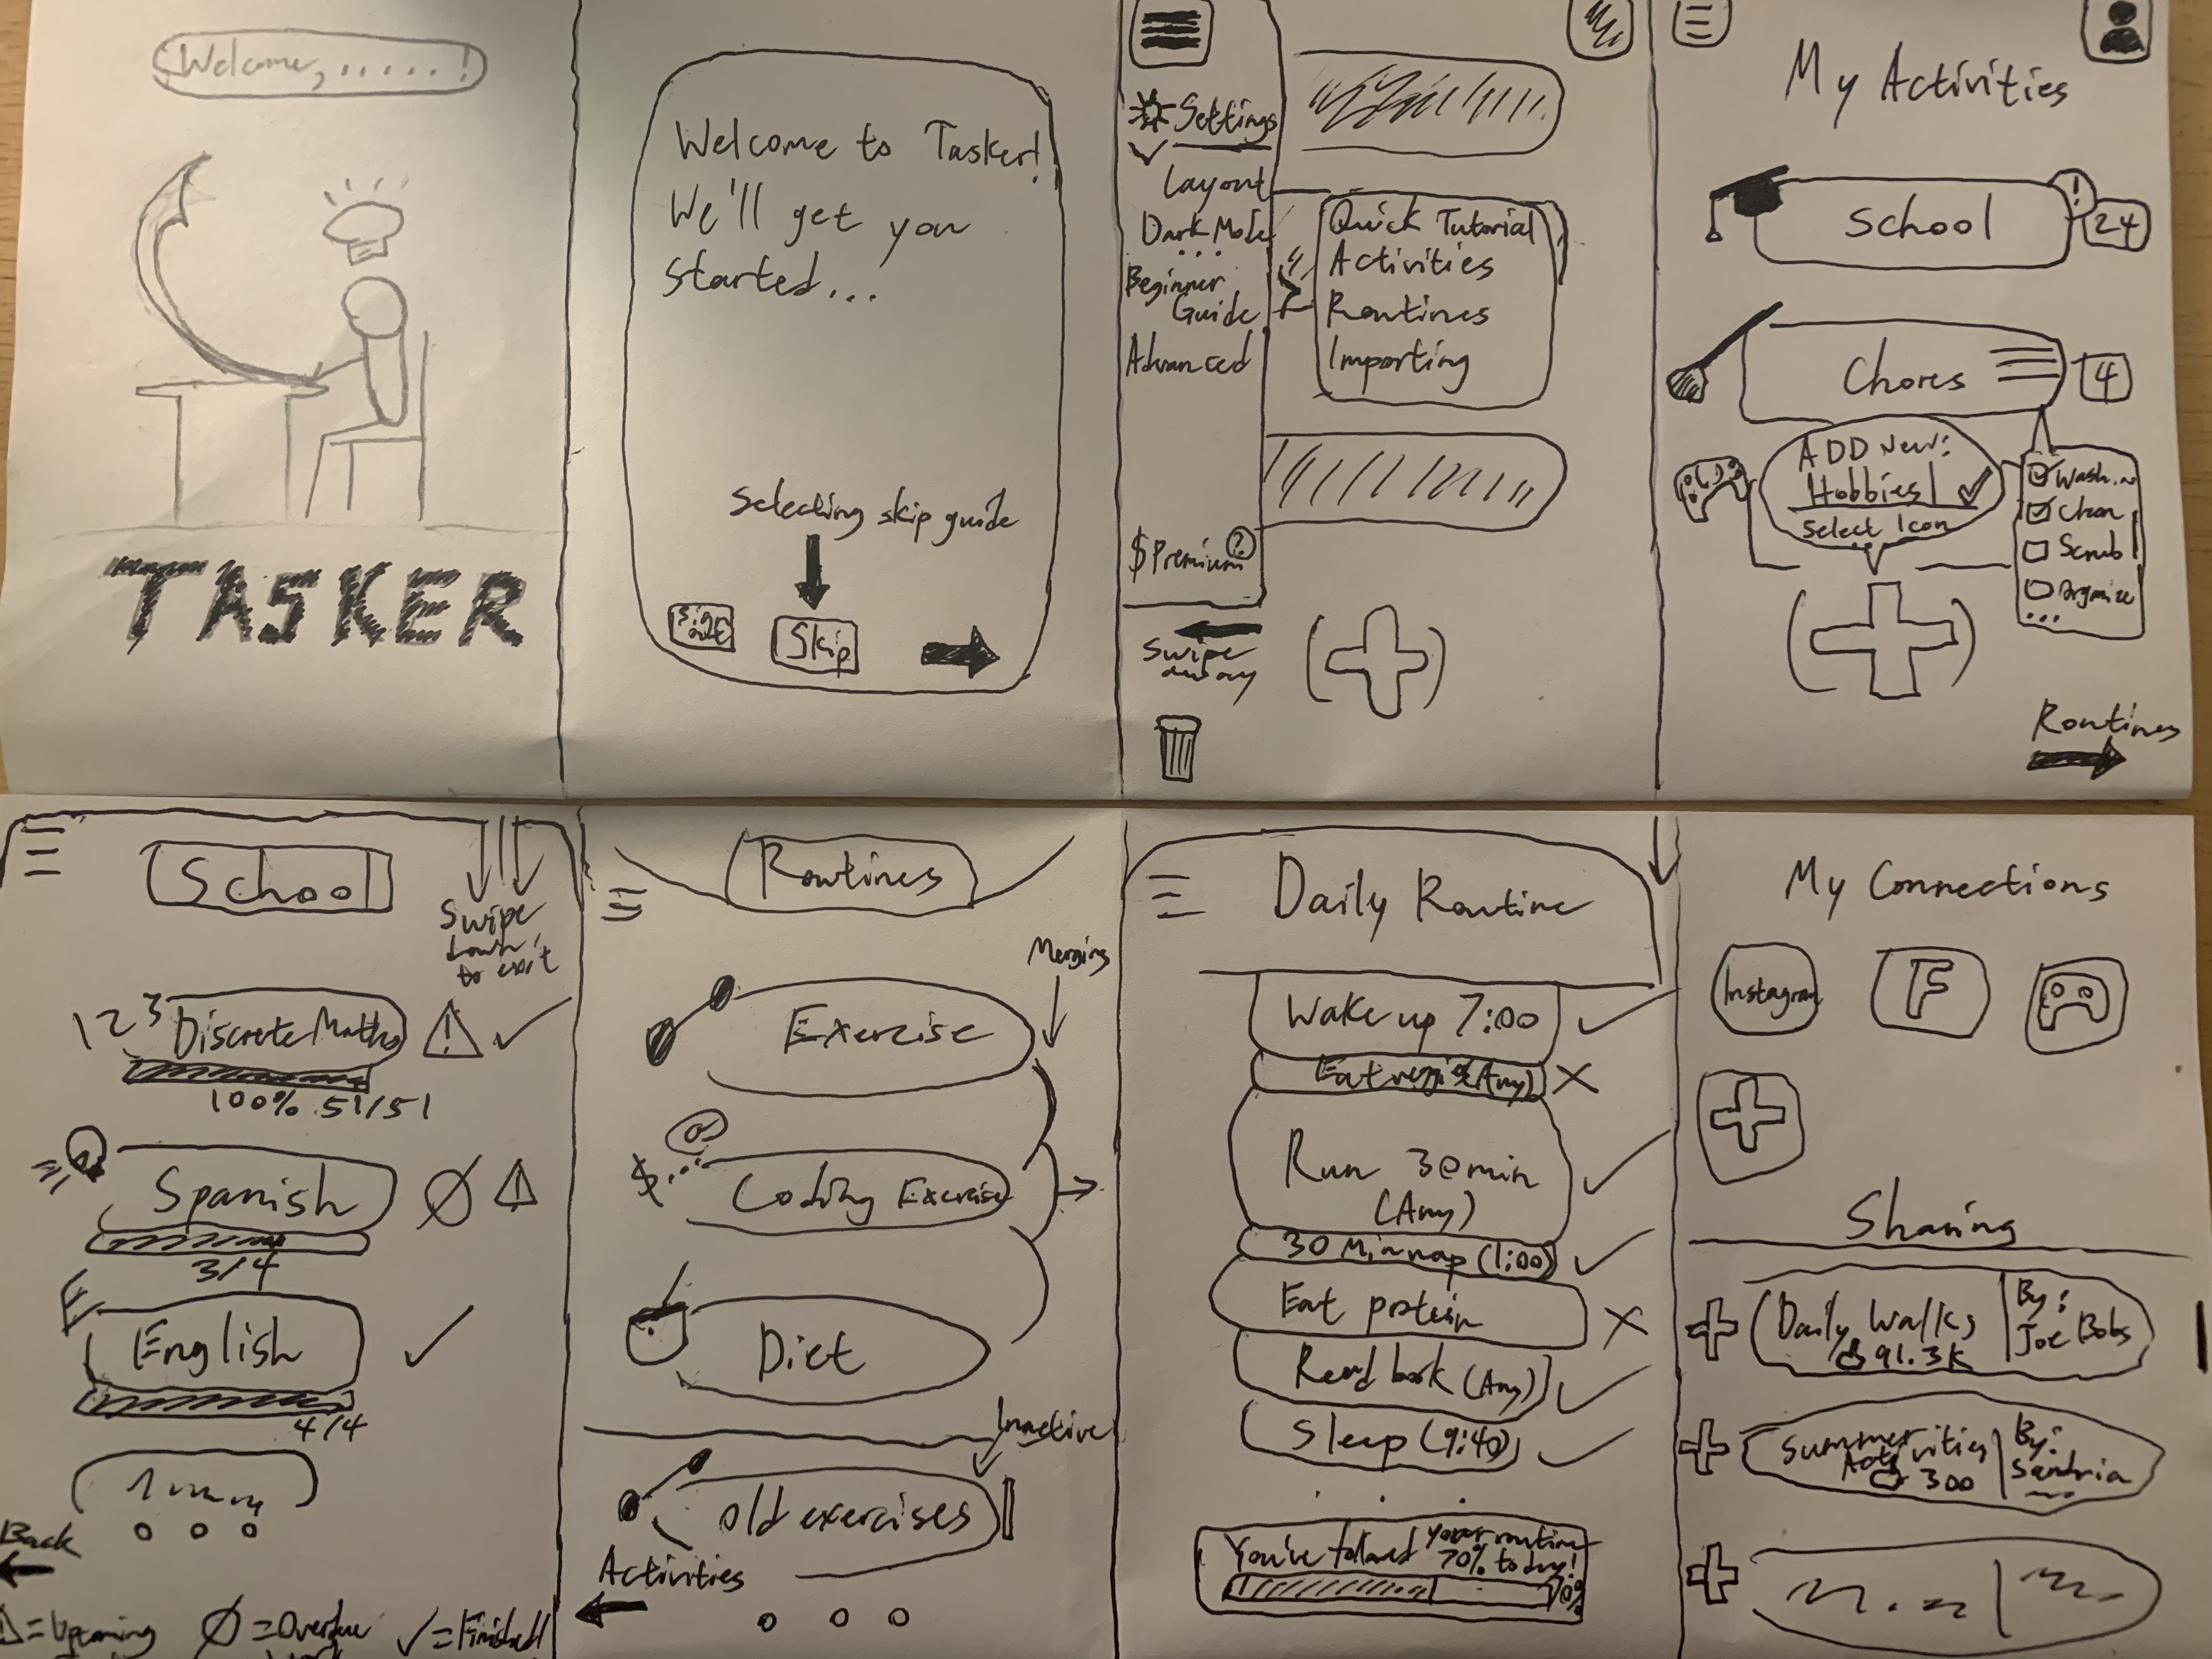 Welcome, .....!
TASKER
Welcome to Tasker!
We'll get you
started...
Selecting skip guide
Skip
Settings
Layout
Dark Mode
...
Beginner
Guide
Advanced
$ Premium ?
Swipe
away
Quick Tutorial
Activities
Routines
Importing
My Activities
School
!
24
Chores
4
ADD New:
Hobbies
Select Icon
Wash
Clean
Scrub
Organize
...
Routines
School
Swipe
down
to exit
123
Discrete Maths
!
100% 51/51
Spanish
!
3/4
E
English
4/4
Back
! = Upcoming
Ø = Overdue
work
✓ = Finished!
Routines
Merging
Exercise
$...
Coding Exercise
Diet
Inactive
old exercises
Activities
Daily Routine
Wake up 7:00
Eat veggies (Any)
Run 30min
(Any)
30 Min nap (1:00)
Eat protein
Read book (Any)
Sleep (9:40)
. . .
You've followed your routine
70% today!
70%
My Connections
Instagram
F
Sharing
Daily Walks
91.3K
By:
Joe Bobs
Summer
Activities
300
By: